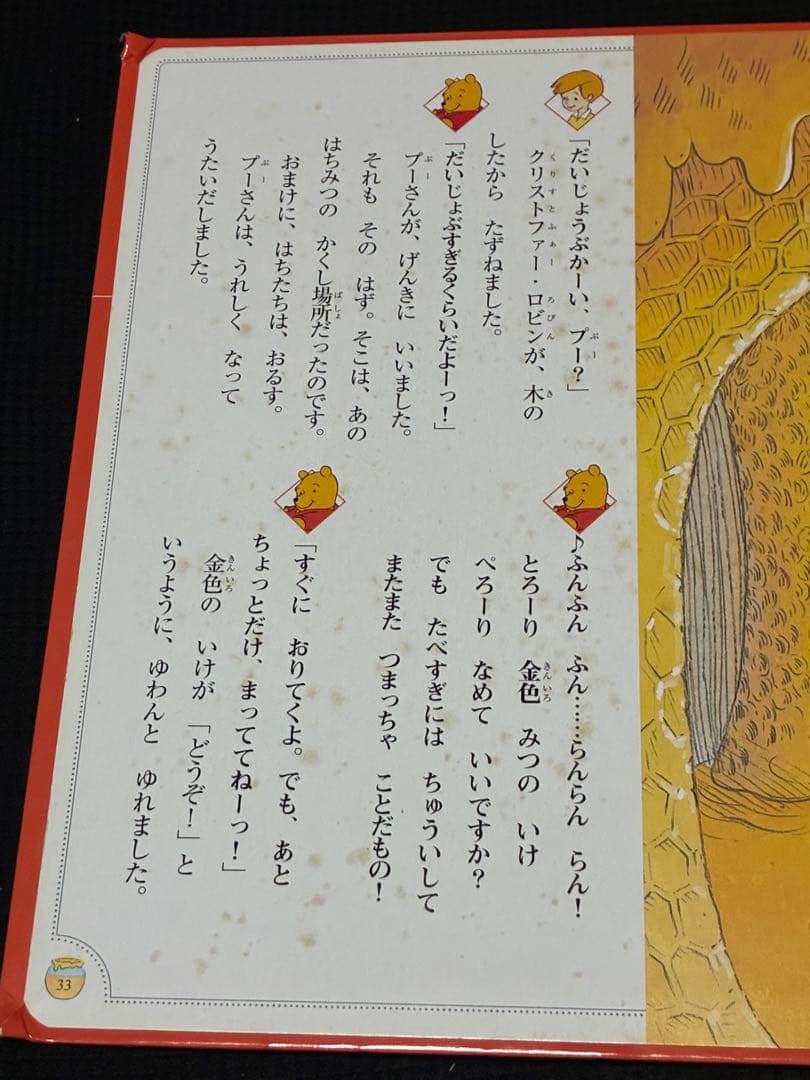 「だいじょうぶかーい、プー？」
クリストファー・ロビンが、木の
したから　たずねました。
「だいじょぶすぎるくらいだよーっ！」
プーさんが、げんきに　いいました。
それも　その　はず。そこは、あの
はちみつの　かくし場所だったのです。
おまけに、はちたちは、おるす。
プーさんは、うれしく　なって
うたいだしました。
♪ふんふん　ふん……らんらん　らん！
とろーり　金色　みつの　いけ
ぺろーり　なめて　いいですか？
でも　たべすぎには　ちゅういして
またまた　つまっちゃ　ことだもの！
「すぐに　おりてくよ。でも、あと
ちょっとだけ、まっててねーっ！」
金色の　いけが　「どうぞ！」と
いうように、ゆわんと　ゆれました。
33